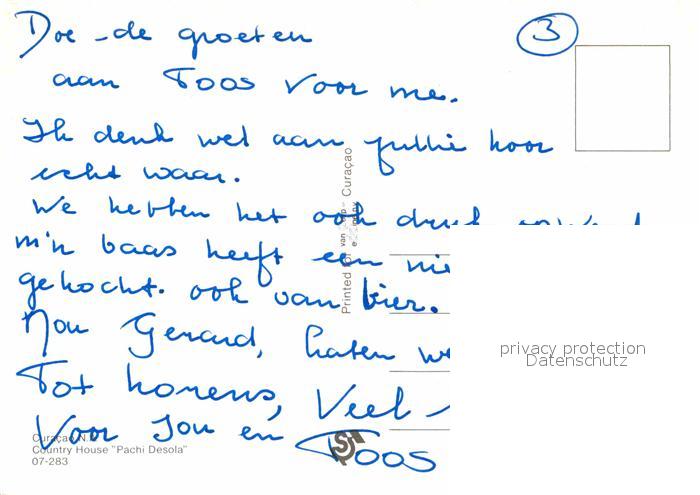 3
Doe de groeten
aan Toos voor me.
Ik denk wel aan jullie hoor
echt waar.
We hebben het ook druk
m'n baas heeft een
gekocht. ook van bier.
Nou Gerard, laten
Tot horens, Veel
Voor jou en Toos
Printed for: van Curaçao
Curaçao N.A.
Country House "Pachi Desola"
07-283
privacy protection
Datenschutz